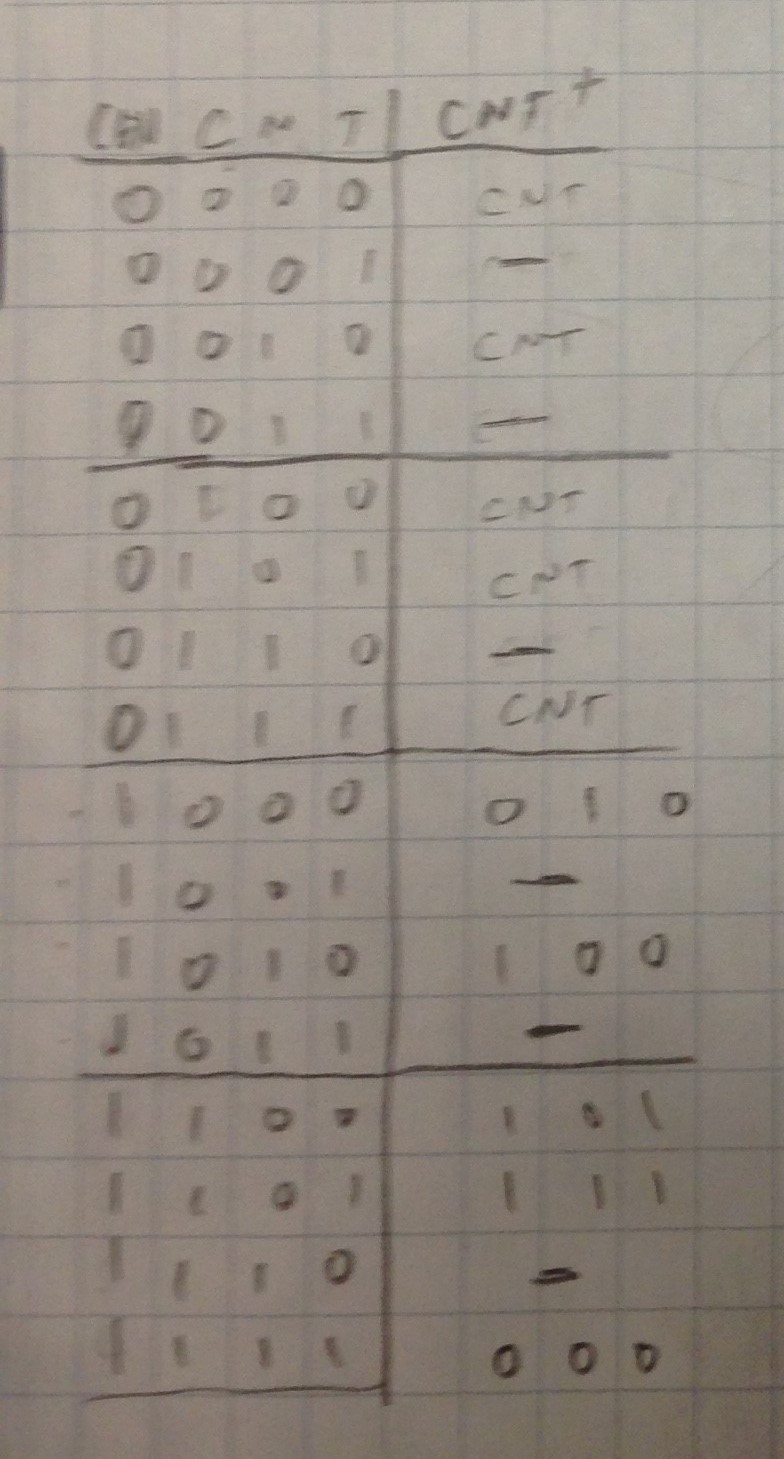 CEN C N T | CNT+
0 0 0 0 | CNT
0 0 0 1 | —
0 0 1 0 | CNT
0 0 1 1 | —
0 1 0 0 | CNT
0 1 0 1 | CNT
0 1 1 0 | —
0 1 1 1 | CNT
1 0 0 0 | 0 1 0
1 0 0 1 | —
1 0 1 0 | 1 0 0
1 0 1 1 | —
1 1 0 0 | 1 0 1
1 1 0 1 | 1 1 1
1 1 1 0 | —
1 1 1 1 | 0 0 0